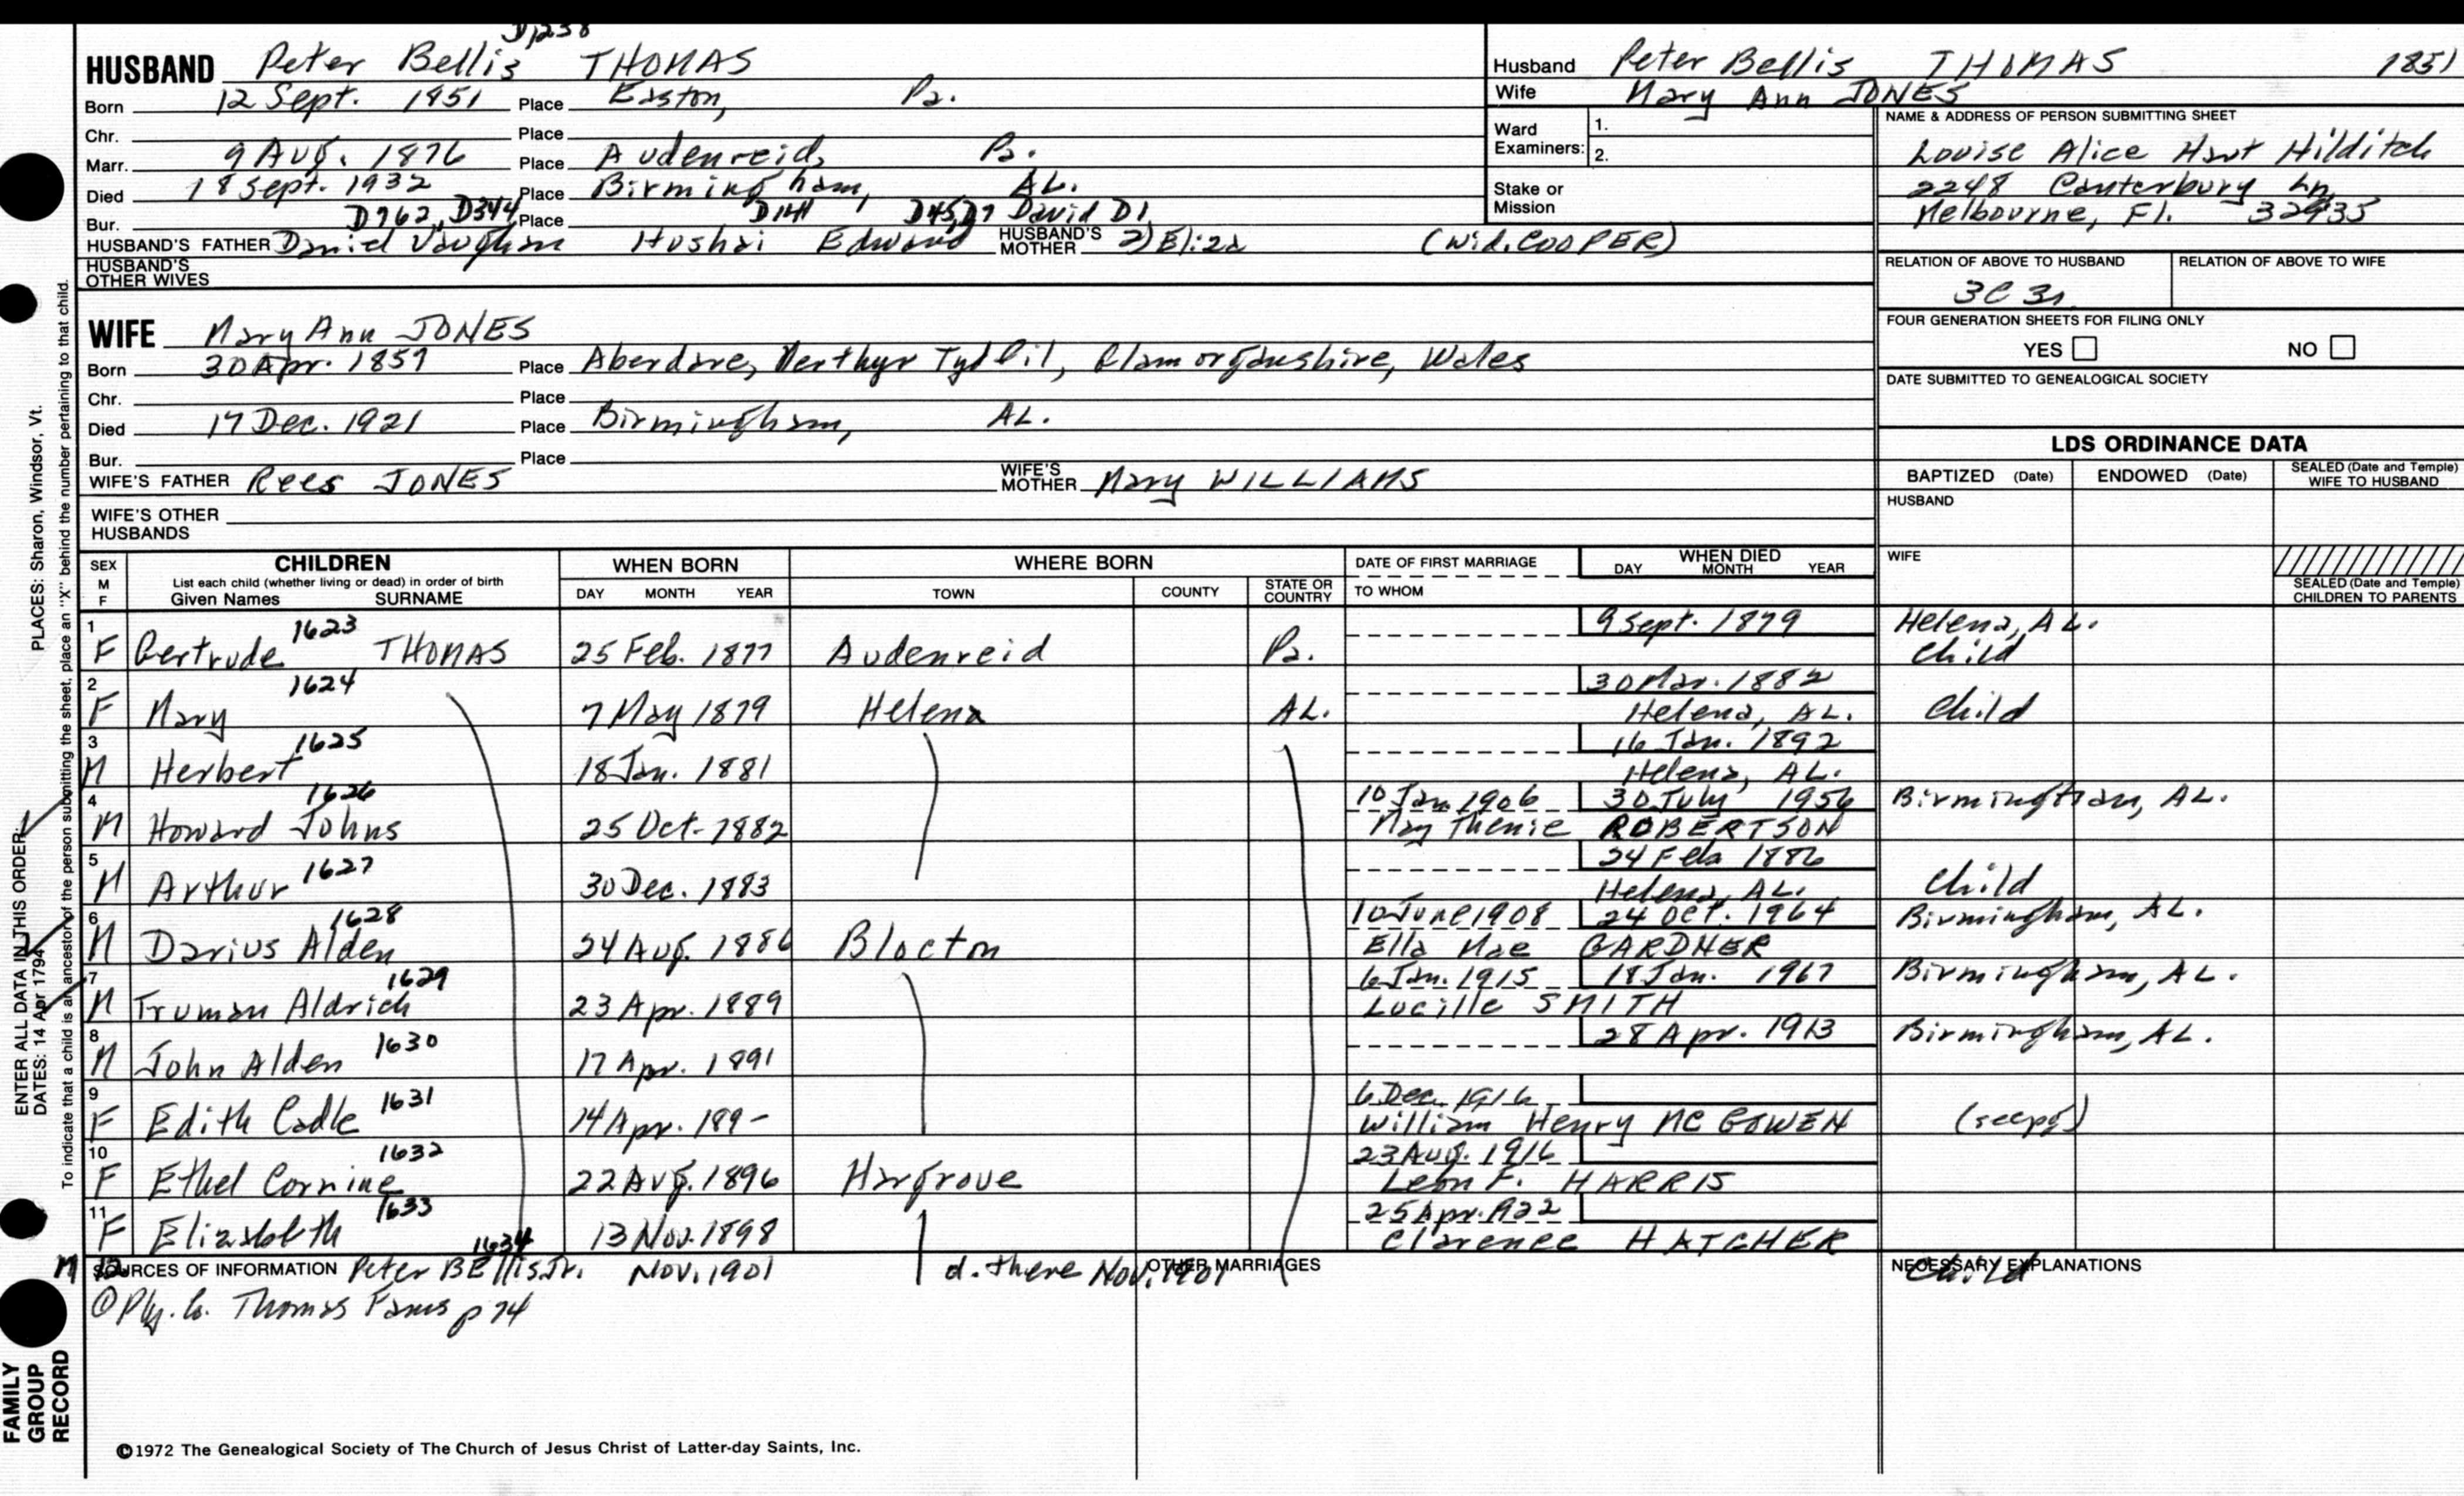 D1238
HUSBAND Peter Bellis THOMAS
Born 12 Sept. 1851 Place Easton, Pa.
Chr. Place
Marr. 9 Aug. 1876 Place Audenreid, Pa.
Died 18 Sept. 1932 Place Birmingham, AL.
Bur. D762, D344, Place D141 D45, D7 David D1
HUSBAND'S FATHER Daniel Vaughan Hushai Edward HUSBAND'S MOTHER 2) Eliza (wid. COOPER)
HUSBAND'S OTHER WIVES
Husband Peter Bellis THOMAS 1851
Wife Mary Ann JONES
Ward Examiners: 1.
2.
Stake or Mission
NAME & ADDRESS OF PERSON SUBMITTING SHEET
Louise Alice Hilditch
2248 Canterbury Ln.
Melbourne, Fl. 32935
RELATION OF ABOVE TO HUSBAND RELATION OF ABOVE TO WIFE
3C 3r
FOUR GENERATION SHEETS FOR FILING ONLY
YES NO
DATE SUBMITTED TO GENEALOGICAL SOCIETY
WIFE Mary Ann JONES
Born 30 Apr. 1857 Place Aberdare, Merthyr Tydfil, Glamorganshire, Wales
Chr. Place
Died 17 Dec. 1921 Place Birmingham, AL.
Bur. Place
WIFE'S FATHER Rees JONES WIFE'S MOTHER Mary WILLIAMS
WIFE'S OTHER HUSBANDS
LDS ORDINANCE DATA
BAPTIZED (Date) ENDOWED (Date) SEALED (Date and Temple) WIFE TO HUSBAND
HUSBAND
WIFE
SEALED (Date and Temple) CHILDREN TO PARENTS
SEX M F CHILDREN List each child (whether living or dead) in order of birth Given Names SURNAME
WHEN BORN DAY MONTH YEAR
WHERE BORN TOWN COUNTY STATE OR COUNTRY
DATE OF FIRST MARRIAGE TO WHOM
WHEN DIED DAY MONTH YEAR
1 1623 9 Sept. 1879 Helena, AL.
F Gertrude THOMAS 25 Feb. 1877 Audenreid Pa. Child
2 1624 30 Mar. 1882
F Mary 7 May 1879 Helena AL. Helena, AL. Child
3 1625 16 Jan. 1892
M Herbert 18 Jan. 1881 Helena, AL.
4 1626 10 Jan. 1906 30 July 1956 Birmingham, AL.
M Howard Johns 25 Oct. 1882 May Thenie ROBERTSON
5 1627 24 Feb 1886
M Arthur 30 Dec. 1883 Helena, AL. Child
6 1628 10 June 1908 24 Oct. 1964 Birmingham, AL.
M Darius Alden 24 Aug. 1886 Blocton Ella Mae GARDNER
7 1629 6 Jan. 1915 18 Jan. 1967 Birmingham, AL.
M Truman Aldrich 23 Apr. 1889 Lucille SMITH
8 1630 28 Apr. 1913 Birmingham, AL.
M John Alden 17 Apr. 1891
9 1631 6 Dec. 1916
F Edith Cadle 14 Apr. 189- William Henry MC GOWEN (seepg)
10 1632 23 Aug. 1916
F Ethel Cornine 22 Aug. 1896 Hargrove Leon F. HARRIS
11 1633 25 Apr. 1922
F Elizabeth 13 Nov. 1898 Clarence HATCHER
1634
M 12 Peter BEllis Jr. Nov. 1901 d. there Nov. 1901 Child
SOURCES OF INFORMATION OTHER MARRIAGES NECESSARY EXPLANATIONS
Thomas p 74
PLACES: Sharon, Windsor, Vt.
ENTER ALL DATA IN THIS ORDER:
DATES: 14 Apr 1794
To indicate that a child is an ancestor of the person submitting the sheet, place an "X" behind the number pertaining to that child.
FAMILY GROUP RECORD
©1972 The Genealogical Society of The Church of Jesus Christ of Latter-day Saints, Inc.